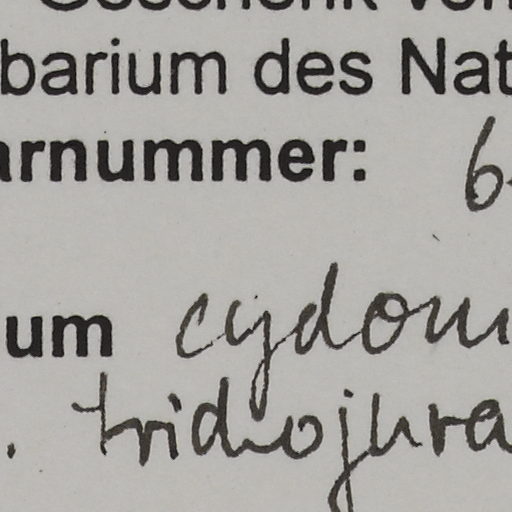 Geschenk von
barium des Nat
arnummer: 6
um cydoni
. trichojura